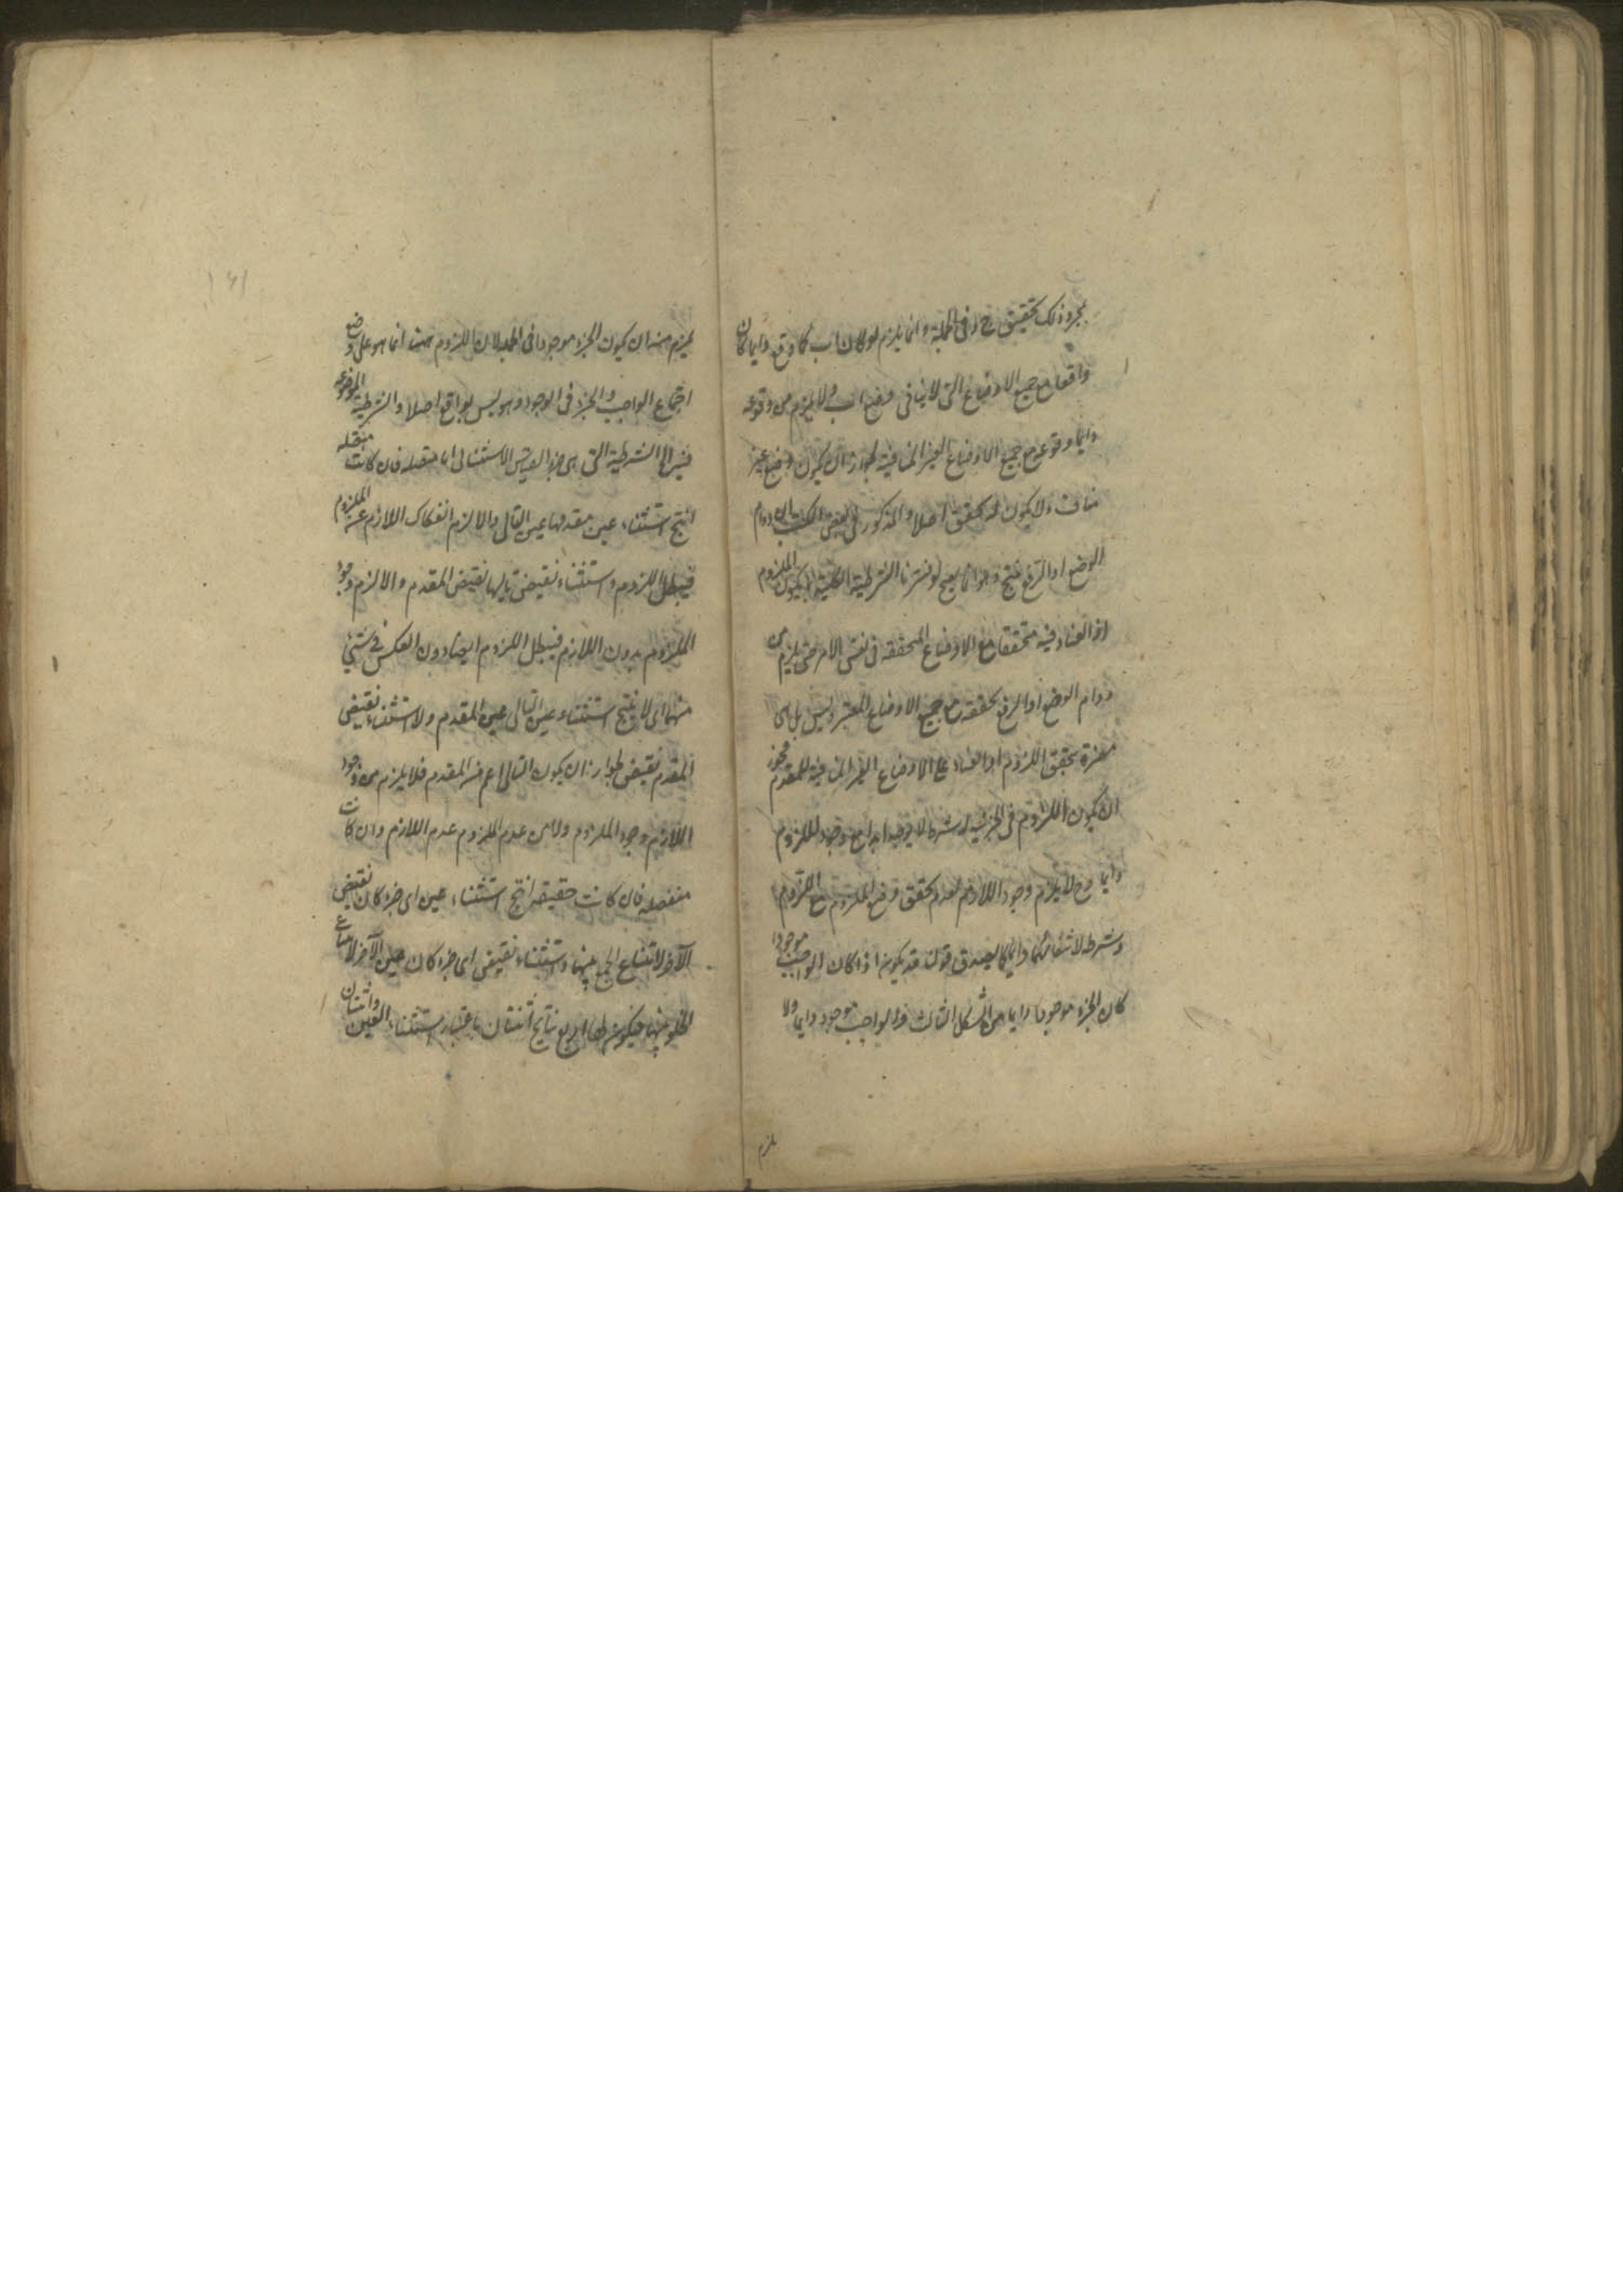 بمجرد ذلك تحقيق ج د فى الجملة وانما يلزم لو كان اب كما وقع دايما كان
واقعا مع جميع الاوضاع التى لا ينافى وضع اب ولا يلزم من وقوعه
دايما وقوعه مع جميع الاوضاع الغير المنافية لجواز ان يكون وضع غير
مناف ولا يكون له تحقق اصلا والمذكور فى بعض الكتب ان دوام
الوضع او الرفع منتج وهو انما يصح لو فسرنا الشرطية الكلية بما يكون اللزوم
او العناد فيه متحققا مع الاوضاع المتحققة فى نفس الامر حتى يلزم من
دوام الوضع او الرفع تحققه مع جميع الاوضاع المعتبرة وليس بل هى
مفسرة بتحقق اللزوم او العناد على الاوضاع الغير المنافية للمقدم فيجوز
ان يكون اللزوم فى الجزئية له شرط لا يوجد ابدا مع وجود الملزوم
دايما وح لا يلزم وجود اللازم لعدم تحقق وضع الملزوم مع اللزوم
وشرطه لانتفائهما دايما كما يصدق قولنا قد يكون اذا كان الواجب موجودا
كان الجزء موجودا دايما من الشكل الثالث والواجب موجود دايما ولا
يلزم
يلزم منه ان يكون الجزء موجودا فى الجملة لان اللزوم هنا انما هو على وضع
اجتماع الواجب والجزء فى الوجود وهو ليس بواقع اصلا والشرطية الموضوعة
فيه اى الشرطية التى هى جزء القياس الاستثنائى اما متصلة فان كانت متصله
انتج استثناء عين مقدمها عين التالى والا لزم انفكاك اللازم عن الملزوم
فيبطل اللزوم واستثناء نقيض تاليها نقيض المقدم والا لزم وجود
الملزوم بدون اللازم فيبطل اللزوم ايضا دون العكس فى شئ
منهما اى لا ينتج استثناء عين التالى عين المقدم ولا استثناء نقيض
المقدم نقيضه لجواز ان يكون التالى اعم من المقدم فلا يلزم من وجود
اللازم وجود الملزوم ولا من عدم الملزوم عدم اللازم وان كانت
منفصلة فان كانت حقيقة انتج استثناء عين اى جزء كان نقيض
الآخر لامتناع الجمع بينهما واستثناء نقيض اى جزء كان عين الآخر لامتناع
الخلو بينهما فيكون لها اربع نتايج اثنتان باعتبار استثناء العين واثنتان